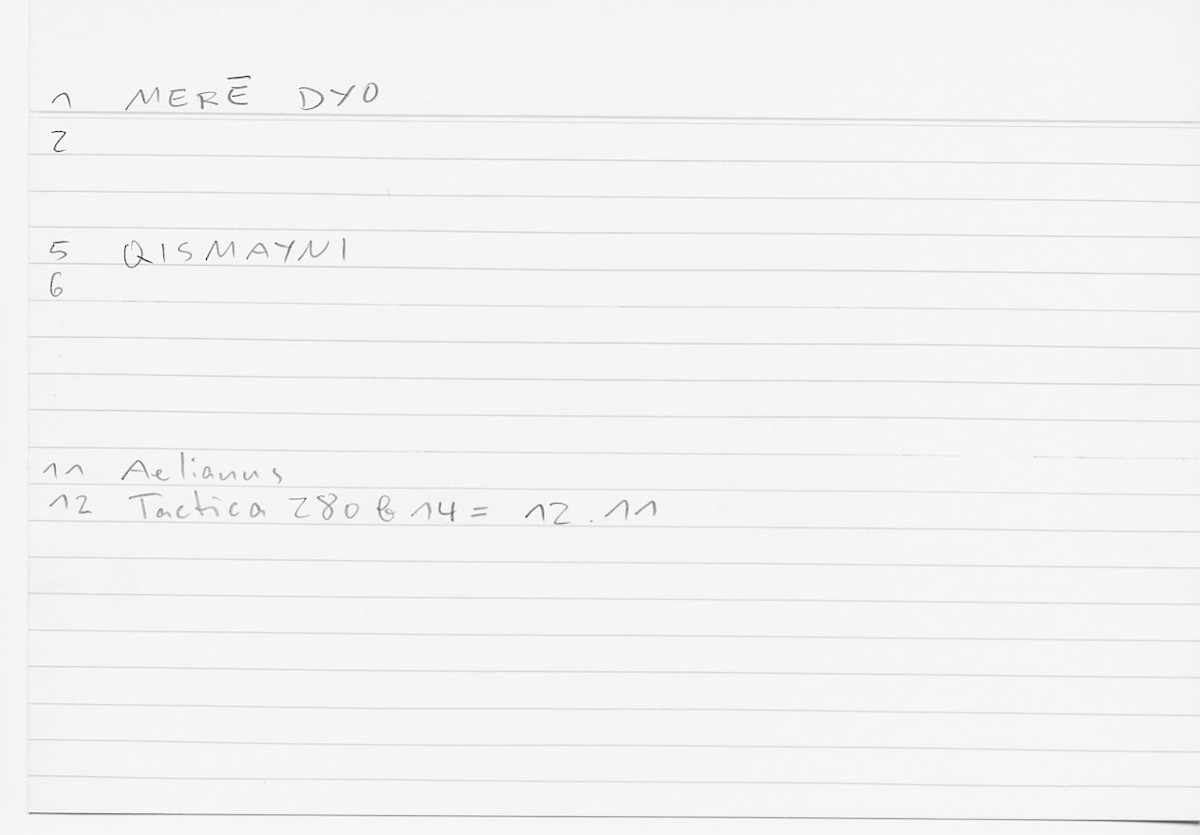 1 MERĒ DYO
2
5 QISMAYNI
6
11 Aelianus
12 Tactica 280 b 14 = 12.11